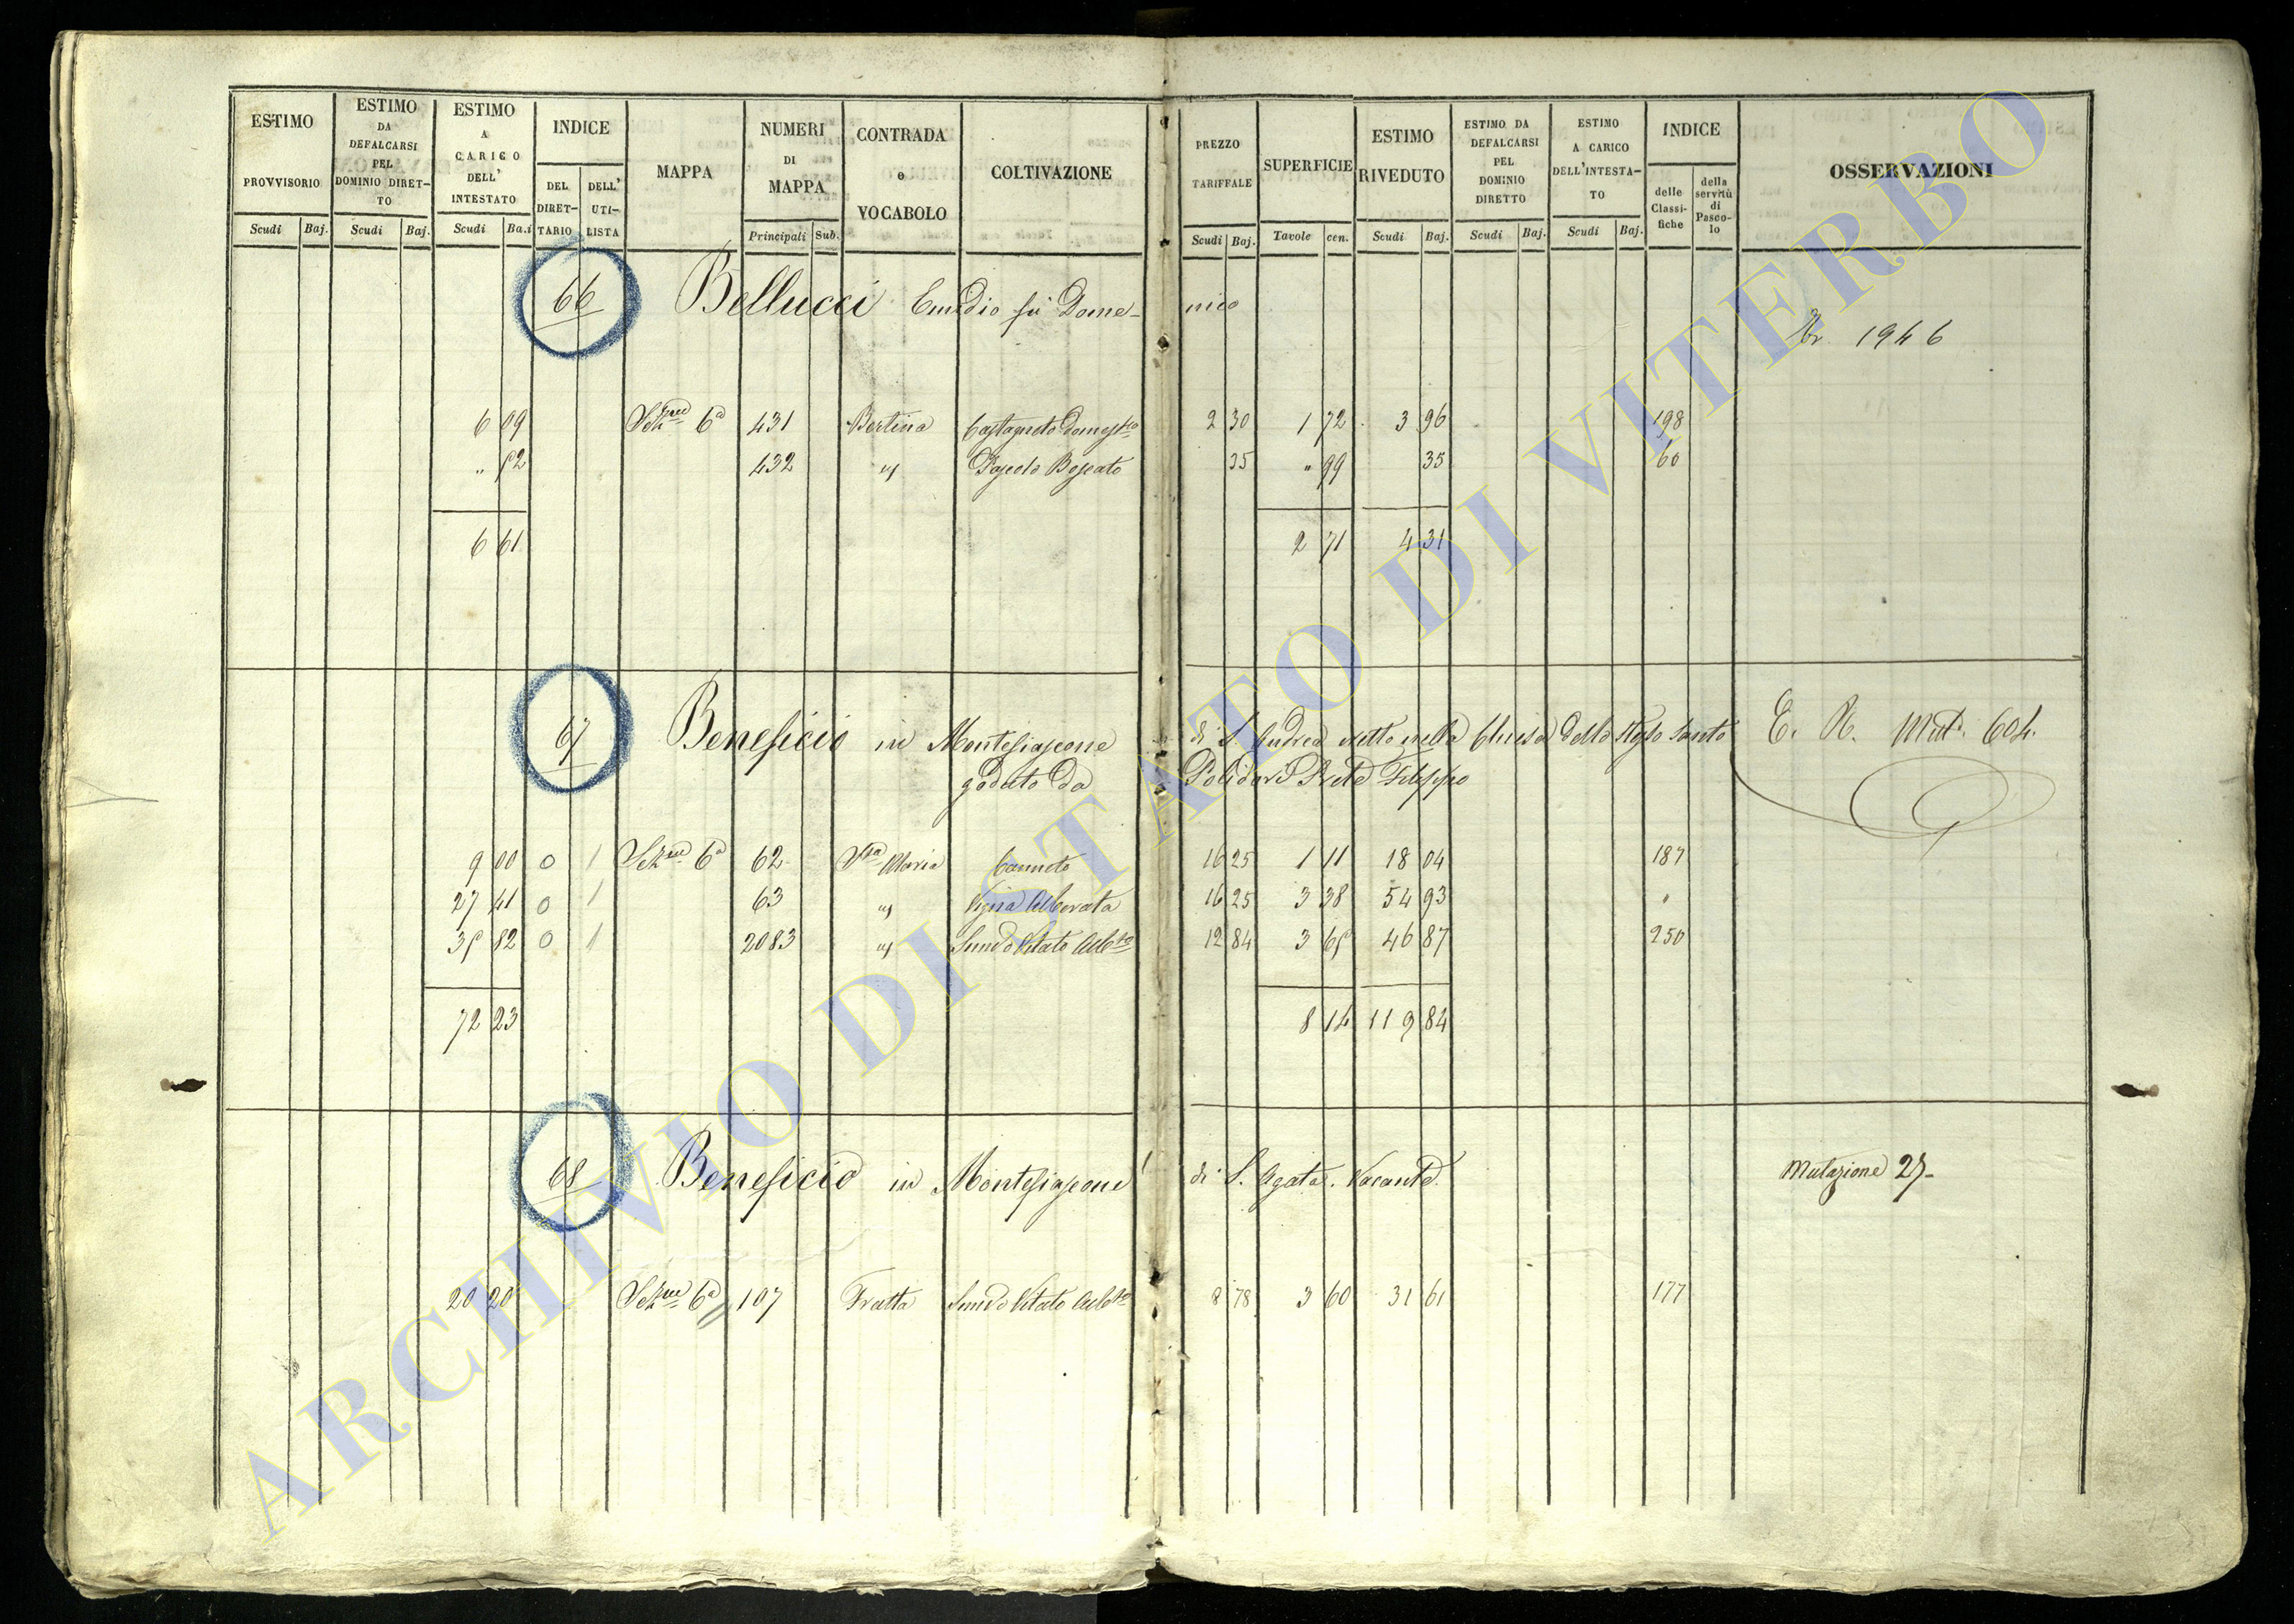 ESTIMO PROVVISORIO Scudi Baj.
ESTIMO DA DEFALCARSI PEL DOMINIO DIRET-TO Scudi Baj.
ESTIMO A CARICO DELL' INTESTATO Scudi Ba.i
INDICE DEL DIRET-TARIO DELL' UTI-LISTA
MAPPA
NUMERI DI MAPPA Principali Sub.
CONTRADA e VOCABOLO
COLTIVAZIONE
PREZZO TARIFFALE Scudi Baj.
SUPERFICIE Tavole cen.
ESTIMO RIVEDUTO Scudi Baj.
ESTIMO DA DEFALCARSI PEL DOMINIO DIRETTO Scudi Baj.
ESTIMO A CARICO DELL'INTESTA-TO Scudi Baj.
INDICE delle Classi-fiche della servitù di Pasco-lo
OSSERVAZIONI
66 Bellucci Emidio fu Dome-nico
1946
6 09 Sez.ne 6a 431 Bertina Castagneto Domes.co 2 30 1 72 3 96 198
" 52 432 id Pascolo Boscato 35 " 99 35 60
6 61 2 71 4 31
67 Beneficio in Montefiascone di S. Andrea eretto nella Chiesa dello Spto Santo E. R. Mut. 604.
goduto da Polidori Prete Filippo
9 00 0 1 Sez.ne 6a 62 S.ta Maria Canneto 16 25 1 11 18 04 187
27 41 0 1 63 id Vigna Alberata 16 25 3 38 54 93 "
35 82 0 1 2083 id Semvo Vitato Alb.to 12 84 3 65 46 87 250
72 23 8 14 119 84
68 Beneficio in Montefiascone di S. Agata. Vacante. Mutazione 25-
20 20 Sez.ne 6a 107 Fratta Semvo Vitato Alb.to 8 78 3 60 31 61 177
ARCHIVIO DI STATO DI VITERBO